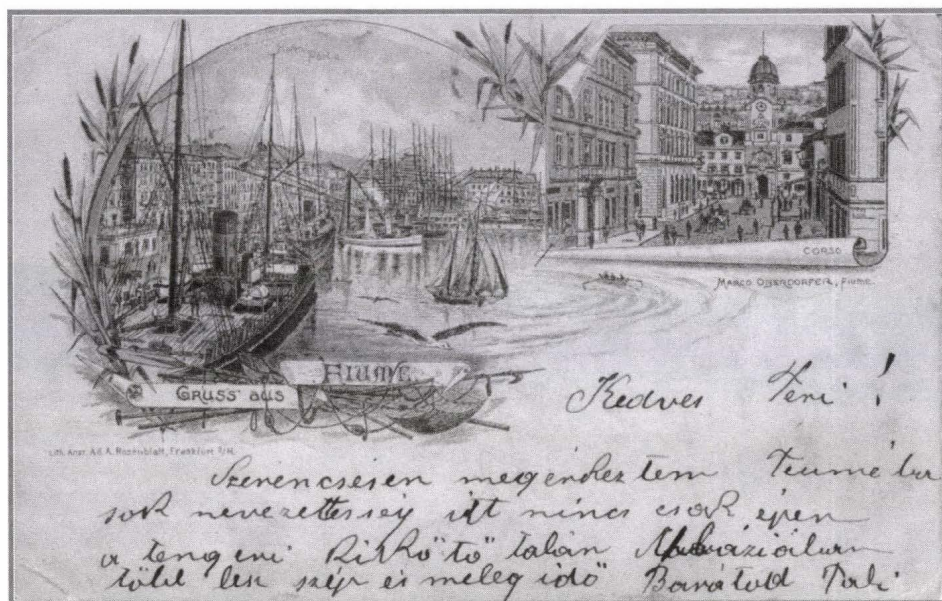 CORSO
MARCO OBERDORFER, FIUME.
GRUSS aus
FIUME
Lith. Anst. Rosenblatt, Frankfurt a/M.
Kedves Teri!
Szerencsésen megérkeztem
sok nevezettesség itt nincs csak épen
a tengeri Kikőtő talán
több lesz szép és meleg idő Barátod Pali